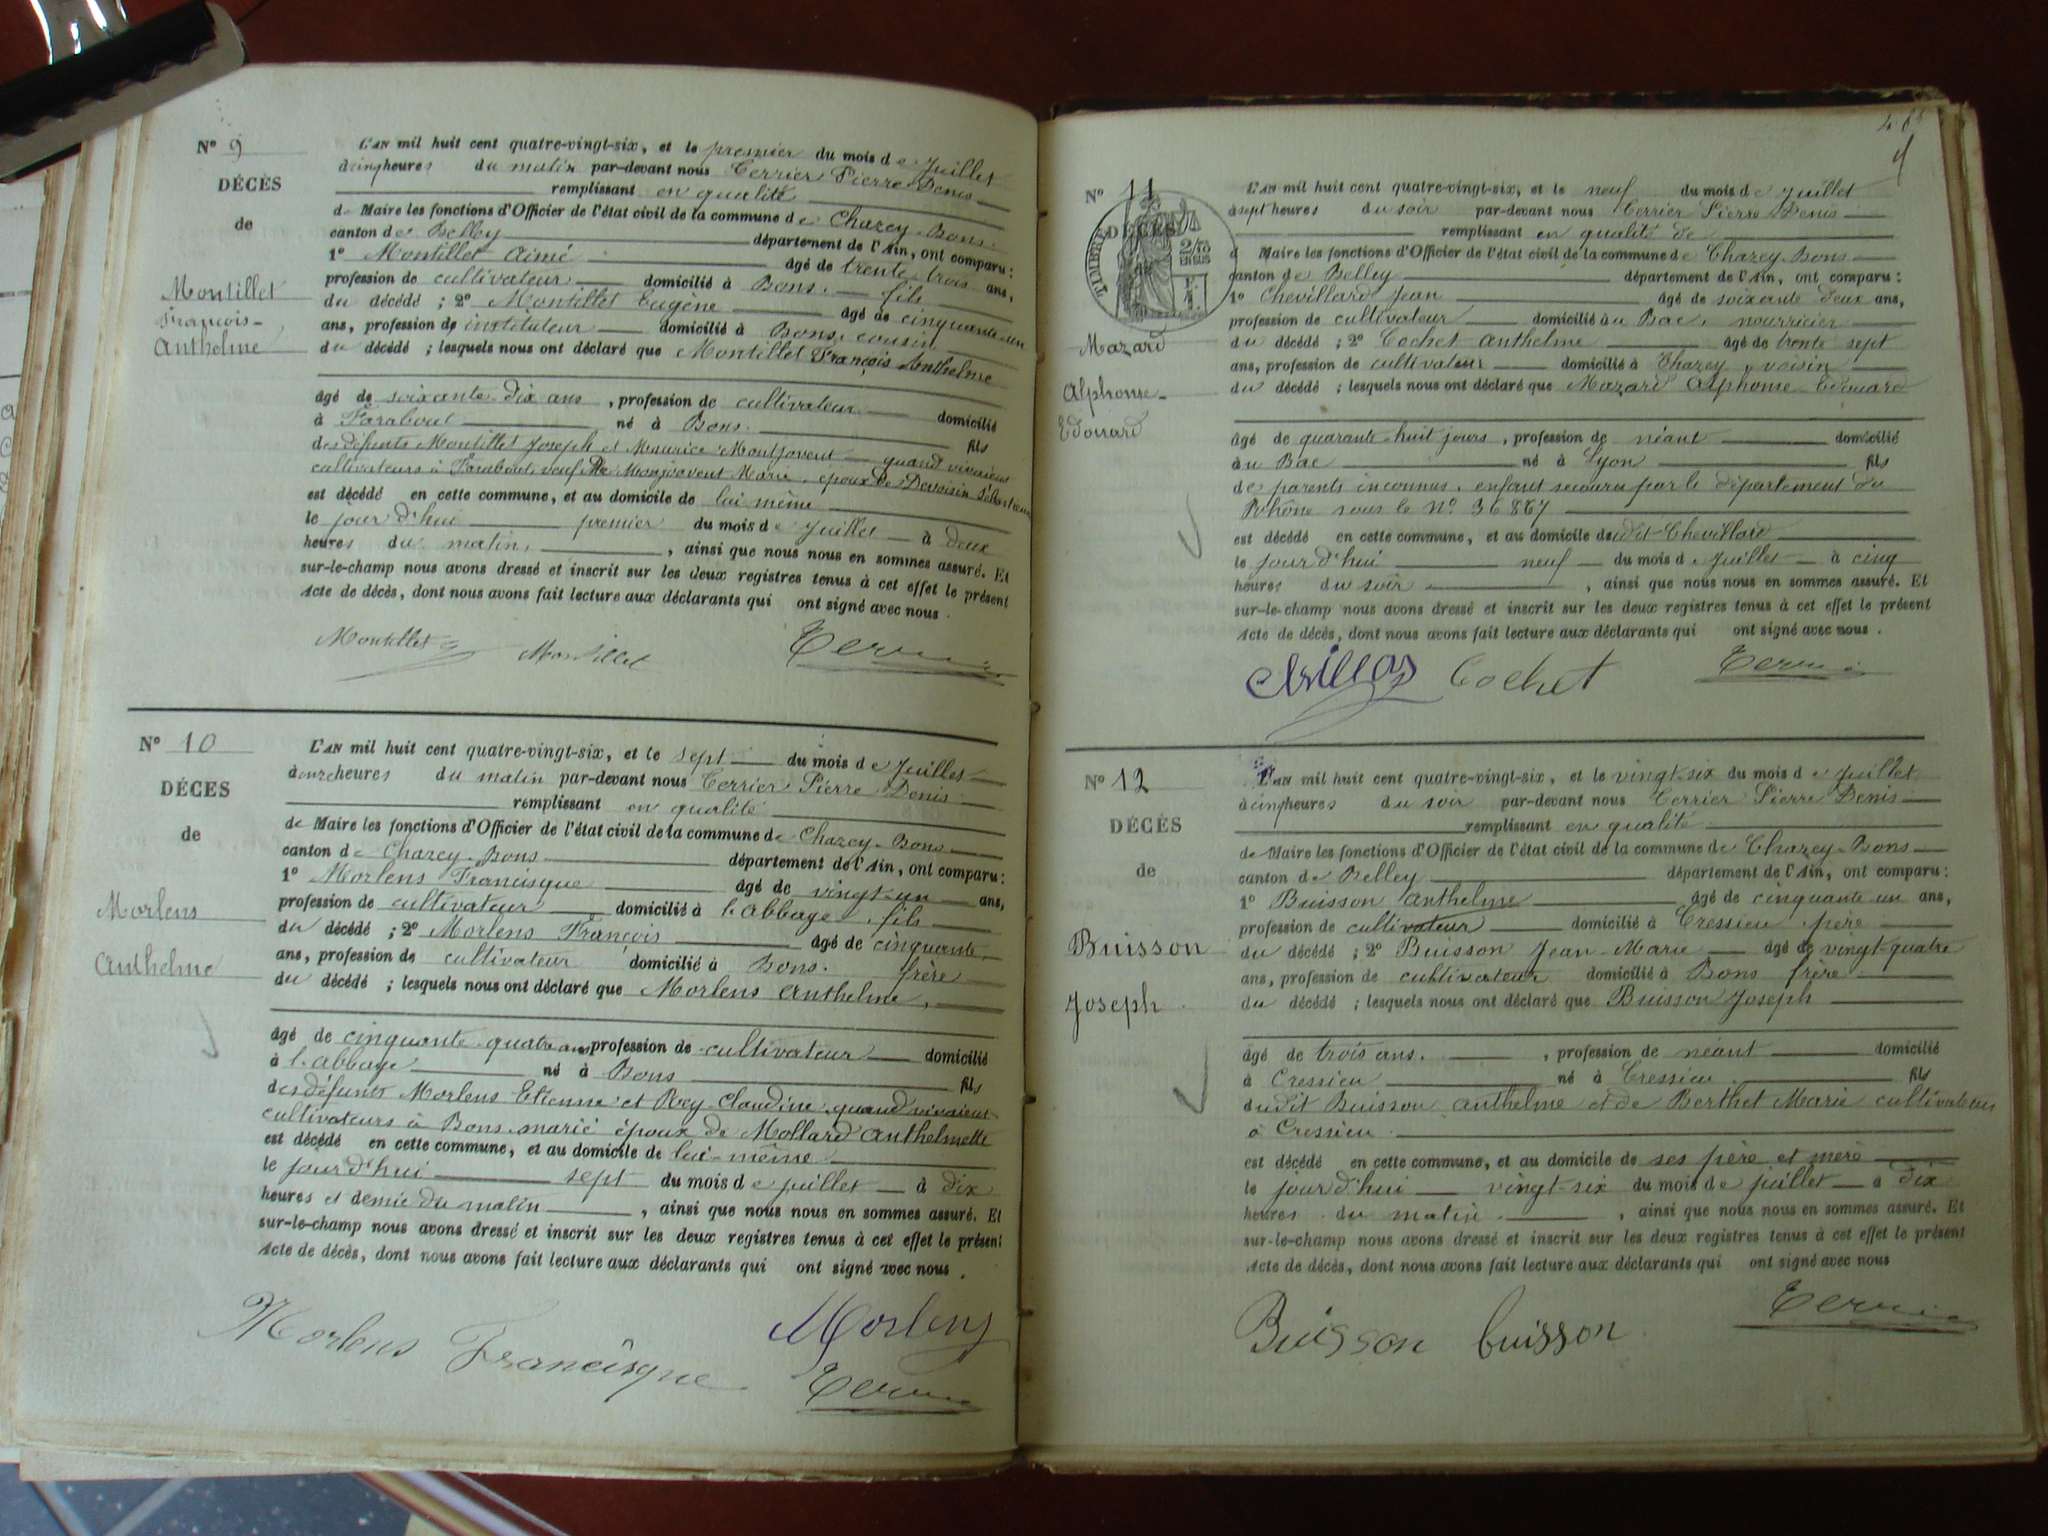 N° 9
DÉCÈS
de
Montillet
François-
Anthelme
L'AN mil huit cent quatre-vingt-six, et le premier du mois de Juillet
à cinq heures du matin par-devant nous Terrier Pierre Denis
remplissant en qualité
de Maire les fonctions d'Officier de l'état civil de la commune de Chazey-Bons
canton de Belley département de l'Ain, ont comparu :
1° Montillet Aimé âgé de trente trois ans,
profession de cultivateur domicilié à Bons. fils
du décédé ; 2° Montillet Eugène âgé de cinquante un
ans, profession de instituteur domicilié à Bons, cousin
du décédé ; lesquels nous ont déclaré que Montillet François Anthelme
âgé de soixante-dix ans, profession de cultivateur domicilié
à Farabout né à Bons. fils
des défunts Montillet Joseph et Maurice Montjovent quand vivaient
cultivateurs à Farabout, veuf de Monjovent Marie, époux de Devoisin
est décédé en cette commune, et au domicile de lui même
le jour d'hui premier du mois de Juillet à deux
heures du matin, , ainsi que nous nous en sommes assuré. Et
sur-le-champ nous avons dressé et inscrit sur les deux registres tenus à cet effet le présent
Acte de décès, dont nous avons fait lecture aux déclarants qui ont signé avec nous.
Montillet Montillet Terrier
N° 10
DÉCES
de
Morlens
Anthelme
L'AN mil huit cent quatre-vingt-six, et le sept du mois de Juillet
à onze heures du matin par-devant nous Terrier Pierre Denis
remplissant en qualité
de Maire les fonctions d'Officier de l'état civil de la commune de Chazey-Bons
canton de Chazey-Bons département de l'Ain, ont comparu :
1° Morlens Francisque âgé de vingt-un ans,
profession de cultivateur domicilié à l'Abbaye, fils
du décédé ; 2° Morlens François âgé de cinquante
ans, profession de cultivateur domicilié à Bons. frère
du décédé ; lesquels nous ont déclaré que Morlens Anthelme,
âgé de cinquante-quatre ans profession de cultivateur domicilié
à l'abbaye né à Bons fils
des défunts Morlens Etienne et Rey Claudine quand vivaient
cultivateurs à Bons. marié époux de Mollard Anthelmette
est décédé en cette commune, et au domicile de lui-même
le jour d'hui sept du mois de juillet à dix
heures et demie du matin , ainsi que nous nous en sommes assuré. Et
sur-le-champ nous avons dressé et inscrit sur les deux registres tenus à cet effet le présent
Acte de décès, dont nous avons fait lecture aux déclarants qui ont signé avec nous.
Morlens Francisque Morlens
Terrier
N° 11
TIMBRE
DÉCÈS
Mazard
Alphonse-
Edouard
L'AN mil huit cent quatre-vingt-six, et le neuf du mois de Juillet
à sept heures du soir par-devant nous Terrier Pierre Denis
remplissant en qualité de
d Maire les fonctions d'Officier de l'état civil de la commune de Chazey-Bons
canton de Belley département de l'Ain, ont comparu :
1° Chevillard Jean âgé de soixante deux ans,
profession de cultivateur domicilié au Bac, nourricier
du décédé ; 2° Cochet Anthelme âgé de trente sept
ans, profession de cultivateur domicilié à Chazey, voisin
du décédé ; lesquels nous ont déclaré que Mazard Alphonse Edouard
âgé de quarante-huit jours, profession de néant domicilié
au Bac né à Lyon fils
des parents inconnus. enfant secouru par le département du
Rhône sous le n° 36867
est décédé en cette commune, et au domicile dudit Chevillard
le jour d'hui neuf du mois de Juillet à cinq
heures du soir , ainsi que nous nous en sommes assuré. Et
sur-le-champ nous avons dressé et inscrit sur les deux registres tenus à cet effet le présent
Acte de décès, dont nous avons fait lecture aux déclarants qui ont signé avec nous.
Cochet Terrier
N° 12
DÉCÈS
de
Buisson
Joseph
L'AN mil huit cent quatre-vingt-six, et le vingt-six du mois de Juillet
à cinq heures du soir par-devant nous Terrier Pierre Denis
remplissant en qualité
de Maire les fonctions d'Officier de l'état civil de la commune de Chazey-Bons
canton de Belley département de l'Ain, ont comparu :
1° Buisson Anthelme âgé de cinquante un ans,
profession de cultivateur domicilié à Cressieu père
du décédé ; 2° Buisson Jean-Marie âgé de vingt-quatre
ans, profession de cultivateur domicilié à Bons frère
du décédé ; lesquels nous ont déclaré que Buisson Joseph
âgé de trois ans. , profession de néant domicilié
à Cressieu né à Cressieu fils
dudit Buisson Anthelme et de Berthet Marie cultivateurs
à Cressieu.
est décédé en cette commune, et au domicile de ses père et mère
le jour d'hui vingt-six du mois de juillet à dix
heures du matin. , ainsi que nous nous en sommes assuré. Et
sur-le-champ nous avons dressé et inscrit sur les deux registres tenus à cet effet le présent
Acte de décès, dont nous avons fait lecture aux déclarants qui ont signé avec nous
Buisson buisson Terrier